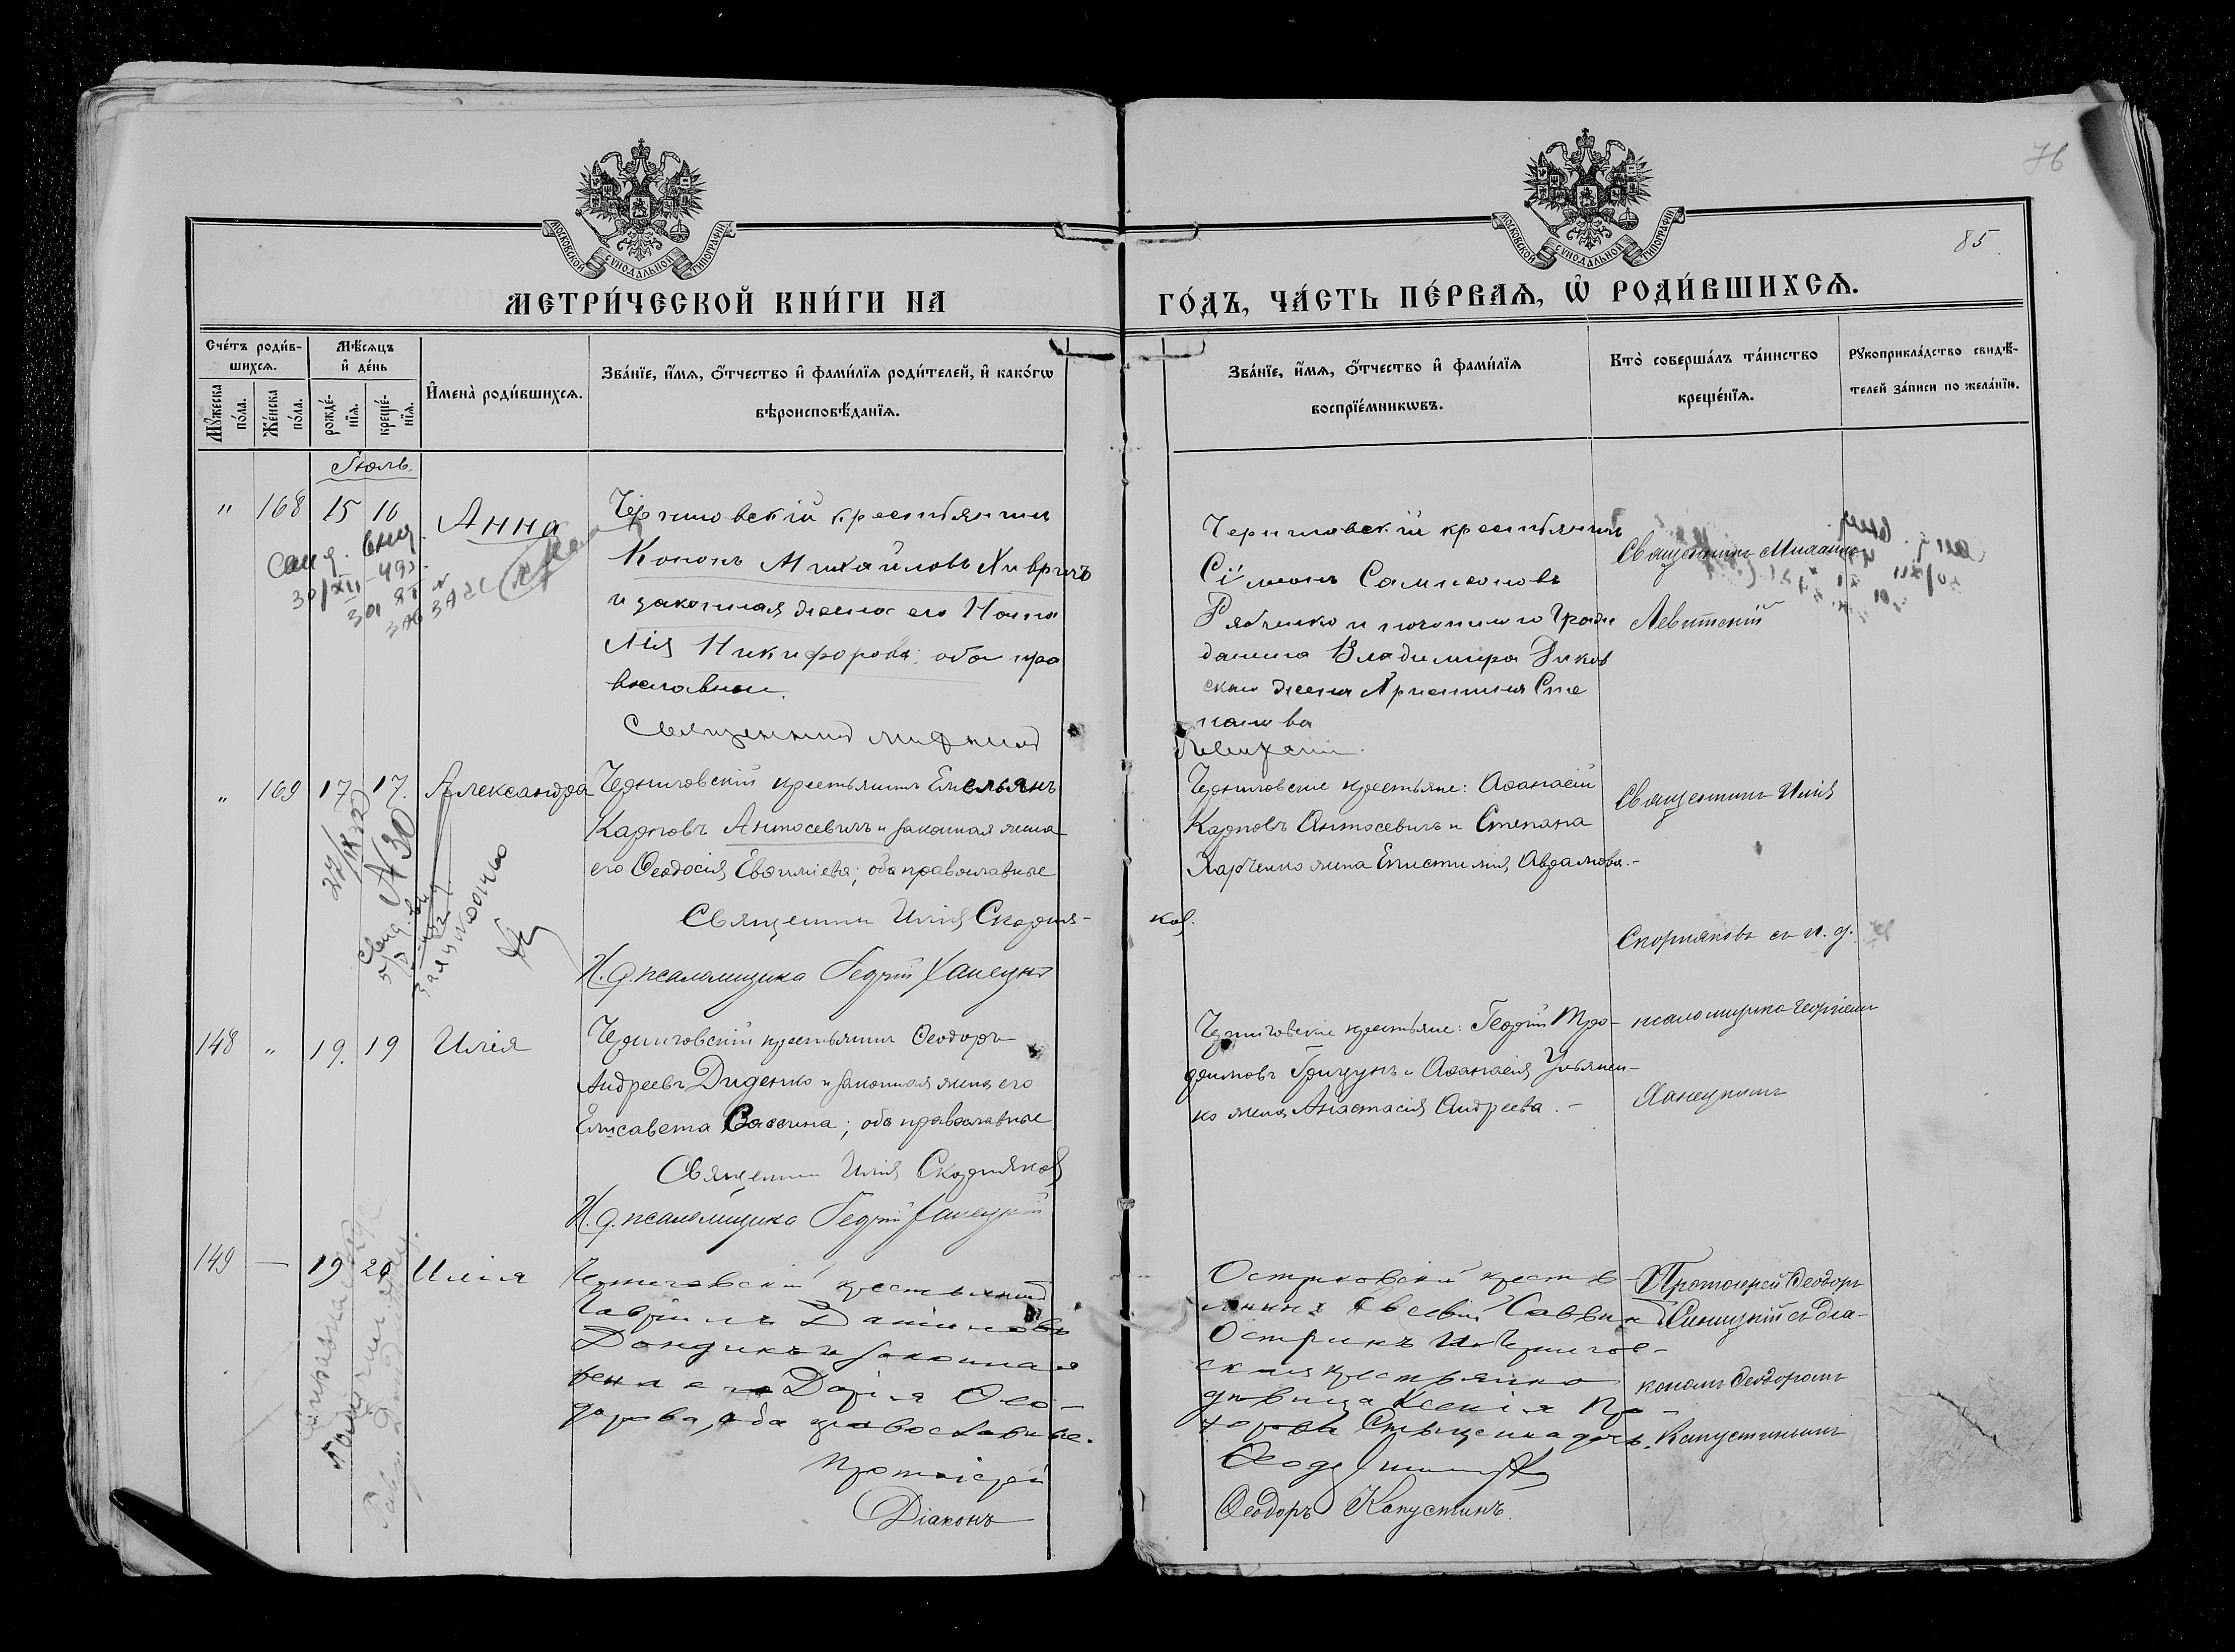 76
85
МОСКОВСКОЙ СѴНОДАЛЬНОЙ ТИПОГРАФІИ
МОСКОВСКОЙ СѴНОДАЛЬНОЙ ТИПОГРАФІИ
МЕТРИ́ЧЕСКОЙ КНИ́ГИ НА
ГО́ДЪ, ЧА́СТЬ ПЕ́РВАѦ, Ѡ РОДИ́ВШИХСѦ.
Сче́тъ роди́в-
шихсѧ.
Мѹжеска по́ла.
Же́нска по́ла.
Мѣ́сѧцъ
и де́нь
рожде́-
нїѧ.
креще́-
нїѧ.
И҆мена̀ роди́вшихсѧ.
Зва́нїе, и҆́мѧ, ѻ҆́тчество и҆ фами́лїѧ роди́телей, и҆ како́гѡ
вѣроисповѣ́данїѧ.
Зва́нїе, и҆́мѧ, ѻ҆́тчество и҆ фами́лїѧ
воспрїе́мникѡвъ.
Кто̀ соверша́лъ та́инство
креще́нїѧ.
Рѹкоприкла́дство свидѣ́-
телей за́писи по жела́нїю.
Іюль.
" 168 15 16 Анна
Черниговскій крестьянинъ
Кононъ Михайловъ Хивричъ
и законная жена его Ната
лія Никифорова; оба пра
вославные.
Священникъ
Черниговскій крестьянинъ
Сімеонъ Сампсоновъ
Рябченко и Граж
данина Владимира
жена Христина Сте
панова
Священникъ Михаилъ
Левитскій
" 169 17 17. Александра
Черниговскій крестьянинъ Емельянъ
Карповъ Антосевичъ и законная жена
его Ѳеодосія Евѳиміева; оба православные
Священникъ Илія Скорня-
ков.
И. д. псаломщика Георгій Ханецкій
Черниговские крестьяне: Аѳанасій
Карповъ Антосевичъ и Степана
Харченко жена Епистимія Авраамова.-
Священникъ Илія
Скорняковъ съ и. д.
псаломщика Георгіемъ
Ханецкимъ
N 30
148 " 19. 19 Илія
Черниговскій крестьянинъ Ѳеодоръ
Андреевъ Диденко и законная жена его
Елисавета Саввина; оба православные
Священникъ Илія Скорняковъ
И. д. псаломщика Георгій Ханецкій
Черниговскіе крестьяне: Георгій Тро-
фимовъ Грищунъ и Аѳанасія Ульянен-
ко жена Анастасія Андреева. -
149 — 19 20 Илія
Черниговскій крестьянинъ
Гавріилъ Даниловъ
Дондикъ и законная
жена его Дарія Ѳео-
дорова, оба православные.
Протоіерей
Діаконъ
Остриковскій крестья-
нинъ Евсевій Саввинъ
Острикъ и Чернигов-
ская крестьянка
дѣвица Ксенія Про-
хорова дочь.
Ѳеодоръ Капустинъ.
Протоіерей Ѳеодоръ
Синицкій съ діа-
кономъ Ѳеодоромъ
Капустинымъ